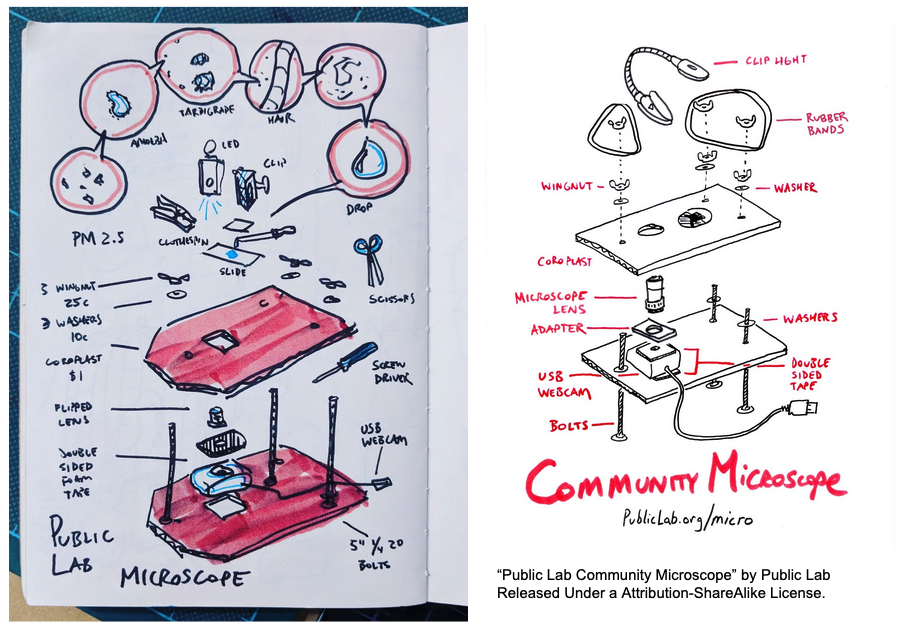 AMOEBA
TARDIGRADE
HAIR
LED
CLIP
DROP
PM 2.5
CLOTHESPIN
SLIDE
SCISSORS
3 WINGNUT
25c
3 WASHERS
10c
COROPLAST
$1
SCREW
DRIVER
FLIPPED
LENS
USB
WEBCAM
DOUBLE
SIDED
FOAM
TAPE
5" 1/4 20
BOLTS
PUBLIC
LAB
MICROSCOPE
CLIP LIGHT
RUBBER
BANDS
WINGNUT
WASHER
COROPLAST
MICROSCOPE
LENS
ADAPTER
WASHERS
USB
WEBCAM
DOUBLE
SIDED
TAPE
BOLTS
COMMUNITY MICROSCOPE
PublicLab.org/micro
“Public Lab Community Microscope” by Public Lab
Released Under a Attribution-ShareAlike License.